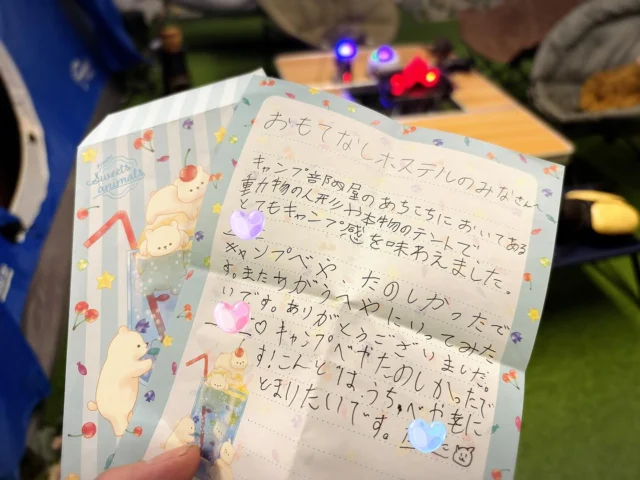 Sweets animals
おもてなしホステルのみなさんへ
キャンプ部屋のあちこちにおいてある
動物の人形や本物のテントで、
とてもキャンプ感を味わえました。
キャンプべや、たのしかったで
す。またちがうへやにいってみた
いです。ありがとうございました。
♡キャンプべやたのしかったで
す!こんどはうちゅうべやに
とまりたいです。